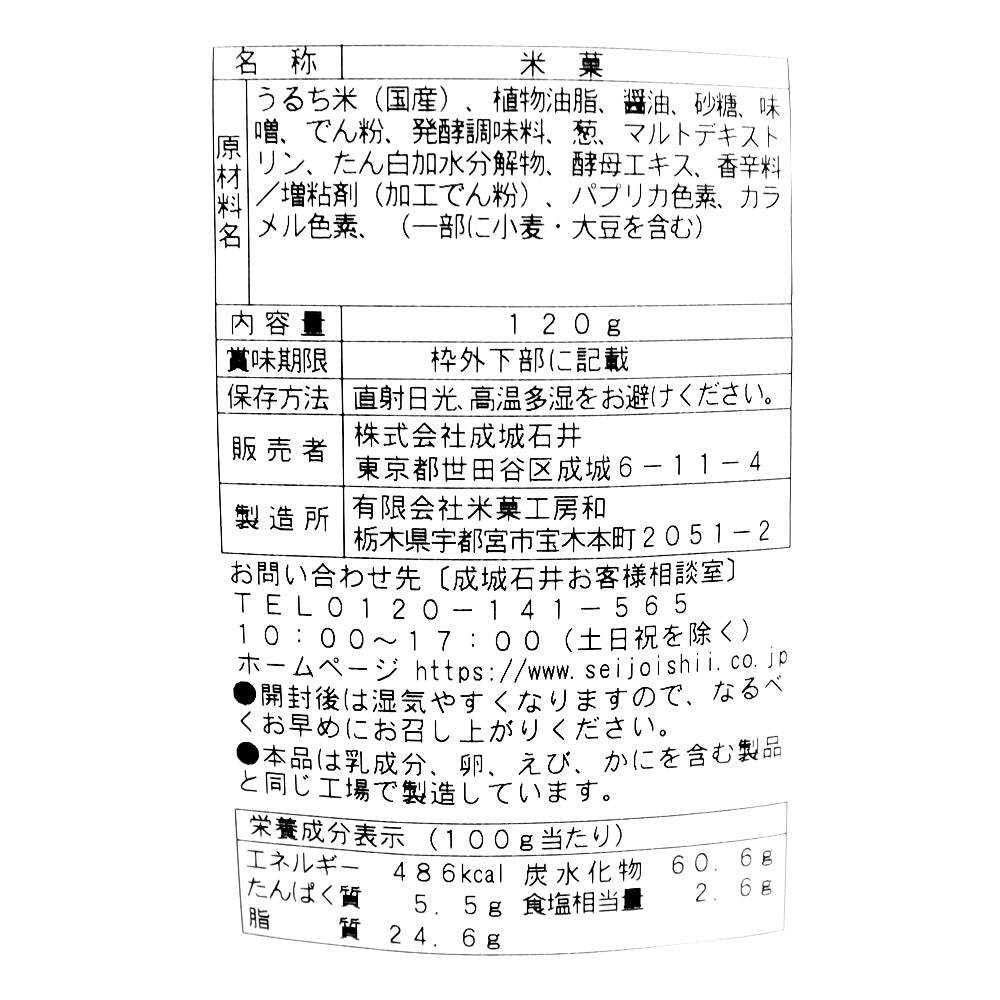 名称 米菓
原材料名
うるち米（国産）、植物油脂、醤油、砂糖、味
噌、でん粉、発酵調味料、葱、マルトデキスト
リン、たん白加水分解物、酵母エキス、香辛料
／増粘剤（加工でん粉）、パプリカ色素、カラ
メル色素、（一部に小麦・大豆を含む）
内容量 １２０g
賞味期限 枠外下部に記載
保存方法 直射日光、高温多湿をお避けください。
販売者 株式会社成城石井
東京都世田谷区成城６－１１－４
製造所 有限会社米菓工房和
栃木県宇都宮市宝木本町２０５１－２
お問い合わせ先〔成城石井お客様相談室〕
ＴＥＬ０１２０－１４１－５６５
１０：００～１７：００（土日祝を除く）
ホームページ https://www.seijoishii.co.jp
●開封後は湿気やすくなりますので、なるべ
くお早めにお召し上がりください。
●本品は乳成分、卵、えび、かにを含む製品
と同じ工場で製造しています。
栄養成分表示（１００g当たり）
エネルギー ４８６kcal 炭水化物 ６０．６g
たんぱく質 ５．５g 食塩相当量 ２．６g
脂質 ２４．６g